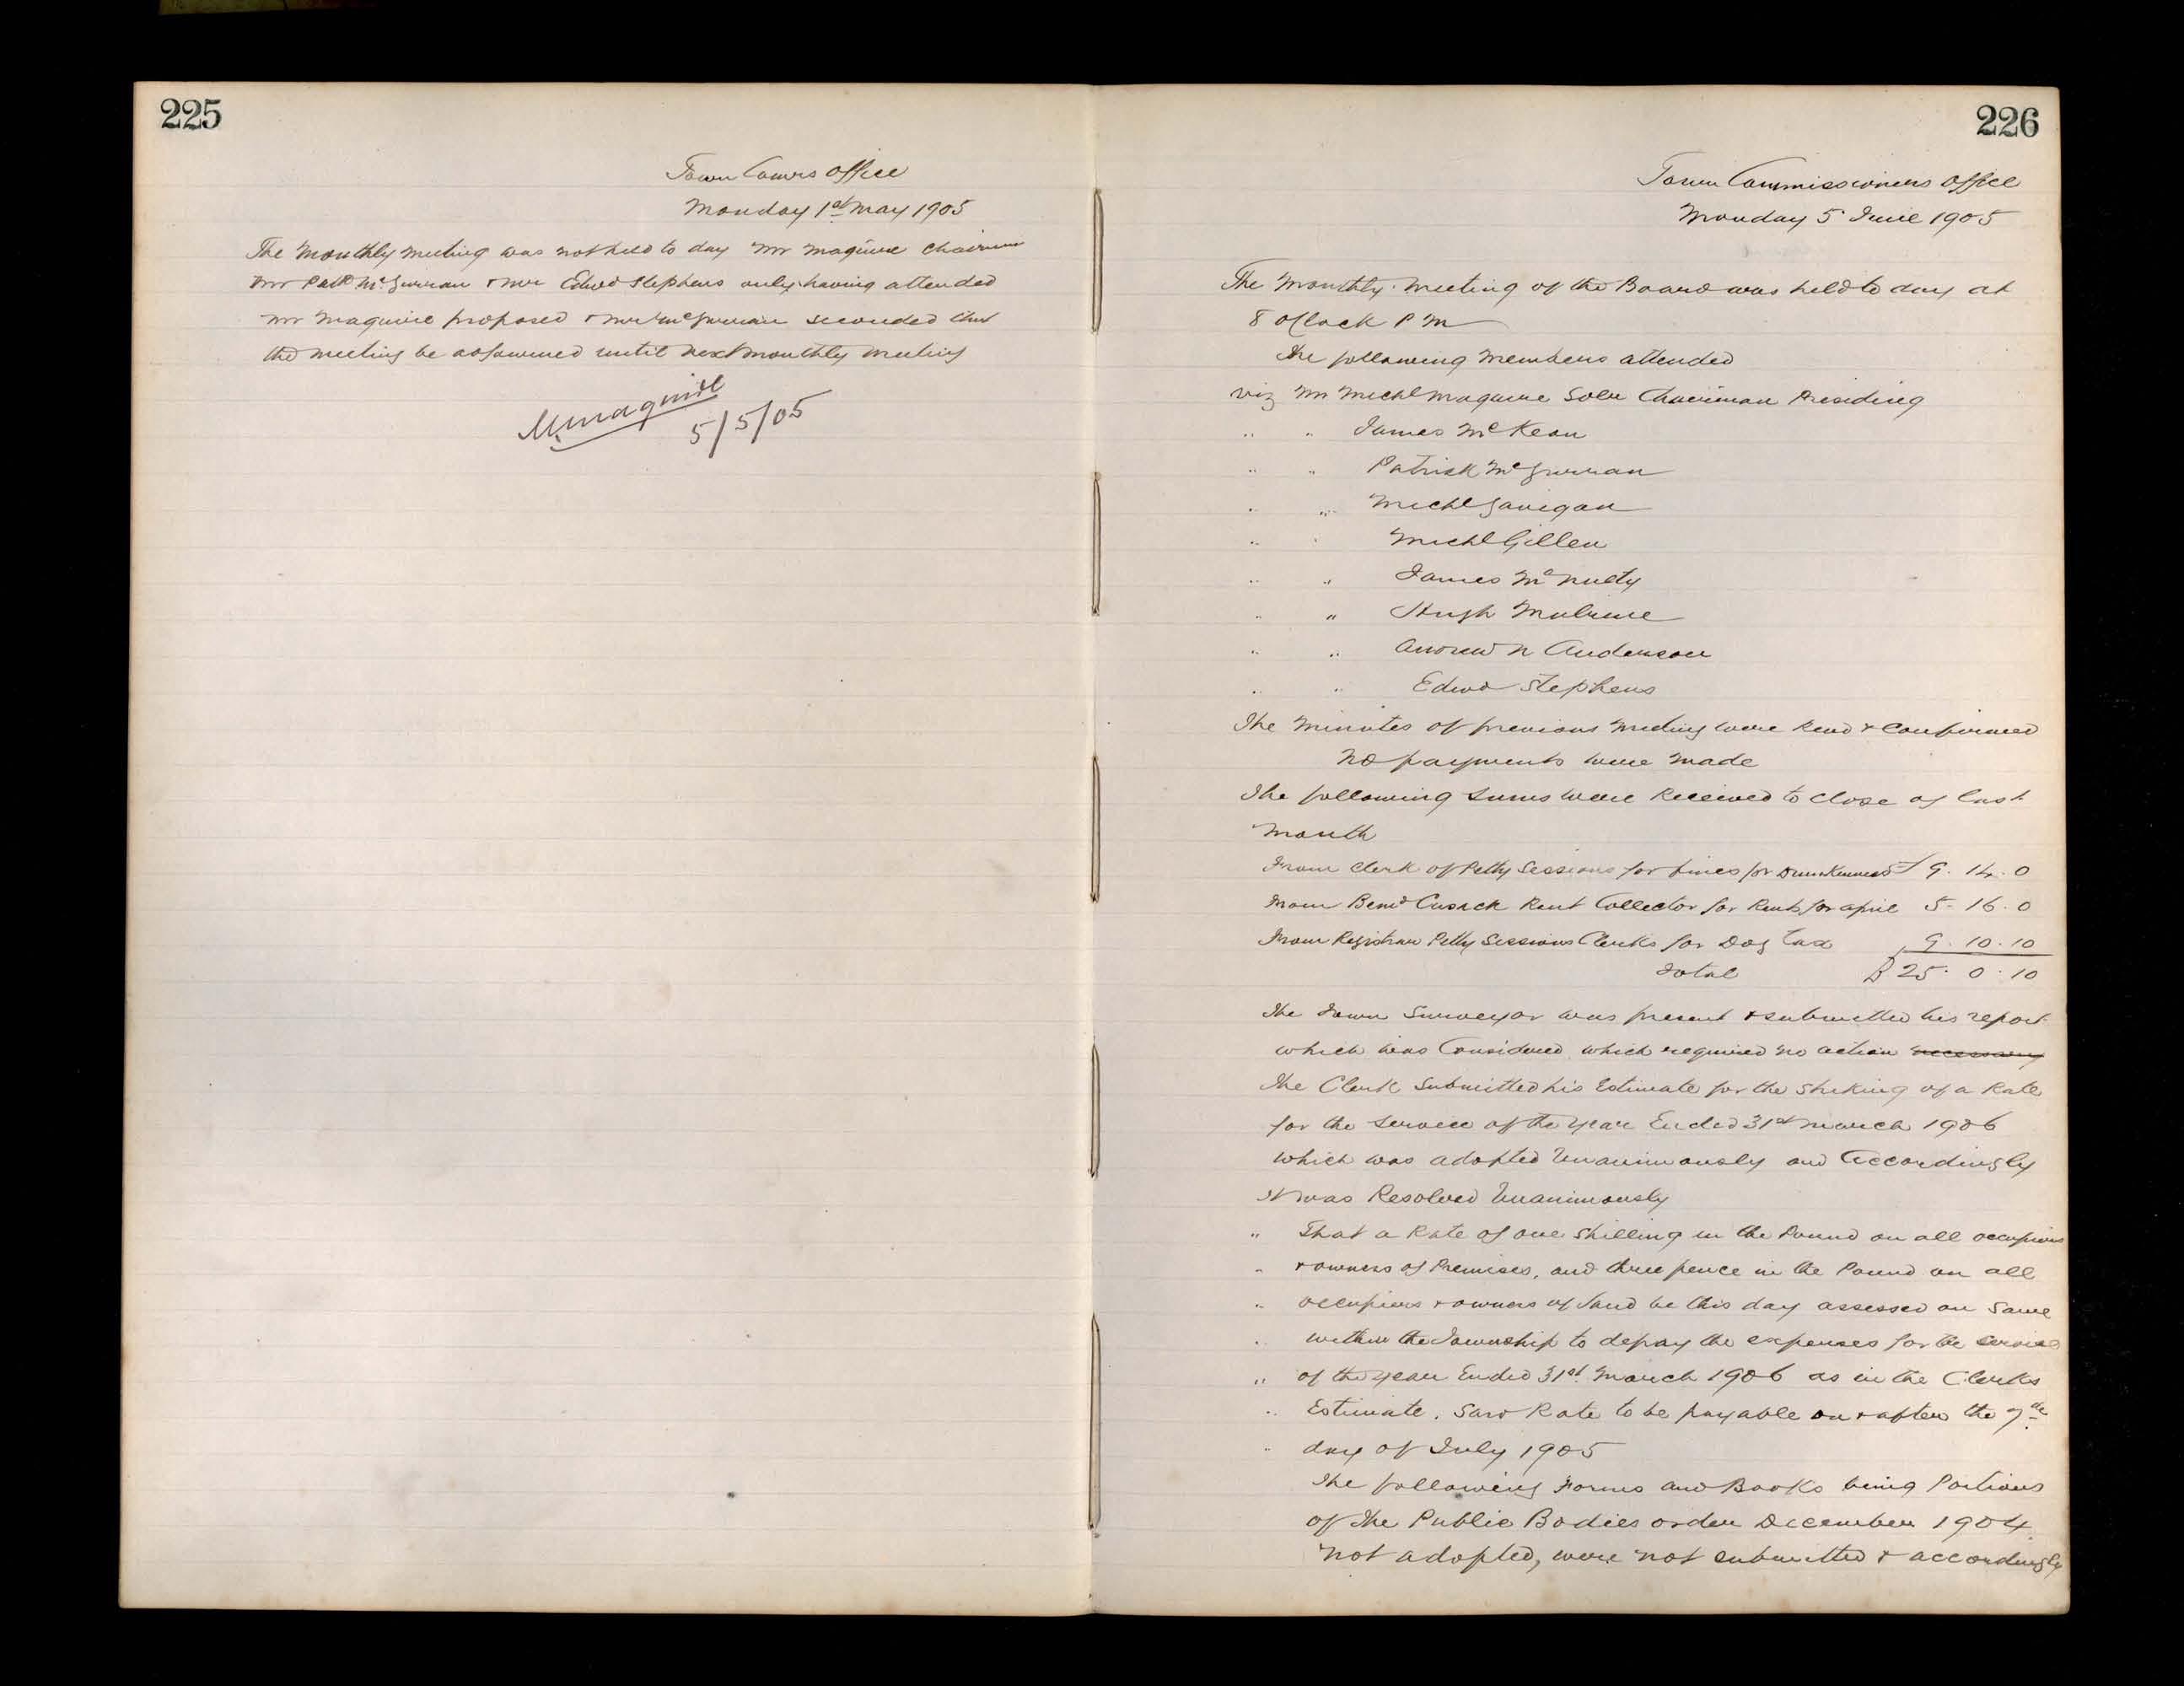 225
Town Comrs Office
Monday 1st May 1905
The Monthly meeting was not held to day Mr Maguire Chairman
Mr Patk McGurran & Mr Edwd Stephens only having attended
Mr Maguire proposed & Mr McGurran seconded that
the meeting be adjourned until next monthly meeting
M Maguire
5/5/05
226
Town Commissioners Office
Monday 5 June 1905
The Monthly Meeting of the Board was held to day at
8 oClock P M
The following Members attended
viz Mr Michl Maguire Solr Chairman Presiding
" " James McKean
" " Patrick McGurran
" " Michl Gavigan
" " Michl Gillen
" " James McNulty
" " Hugh Mulrine
" " Andrew N Anderson
" " Edwd Stephens
The Minutes of previous Meeting were Read & Confirmed
No payments were made
The following Sums were Received to close of last
Month
From Clerk of Petty Sessions for fines for Drunkenness £ 9. 14. 0
From Bernd Cusack Rent Collector for Rents for April 5. 16. 0
From Registrar Petty Sessions Clerks for Dog Tax 9. 10. 10
Total £ 25. 0. 10
The Town Surveyor was present & submitted his report
which was Considered which required no action necessary
The Clerk Submitted his Estimate for the Striking of a Rate
for the Service of the Year Ended 31st March 1906
which was adopted Unanimously and Accordingly
It was Resolved Unanimously
" That a Rate of one Shilling in the Pound on all occupiers
" & owners of Premises, and three pence in the Pound on all
" occupiers & owners of Land be this day assessed on Same
" within the Township to defray the expenses for the Service
" of the Year Ended 31st March 1906 as in the Clerks
" Estimate. Said Rate to be payable on & after the 7th
" day of July 1905
The following Forms and Books being Portions
of the Public Bodies order December 1904
not adopted, were not submitted & accordingly